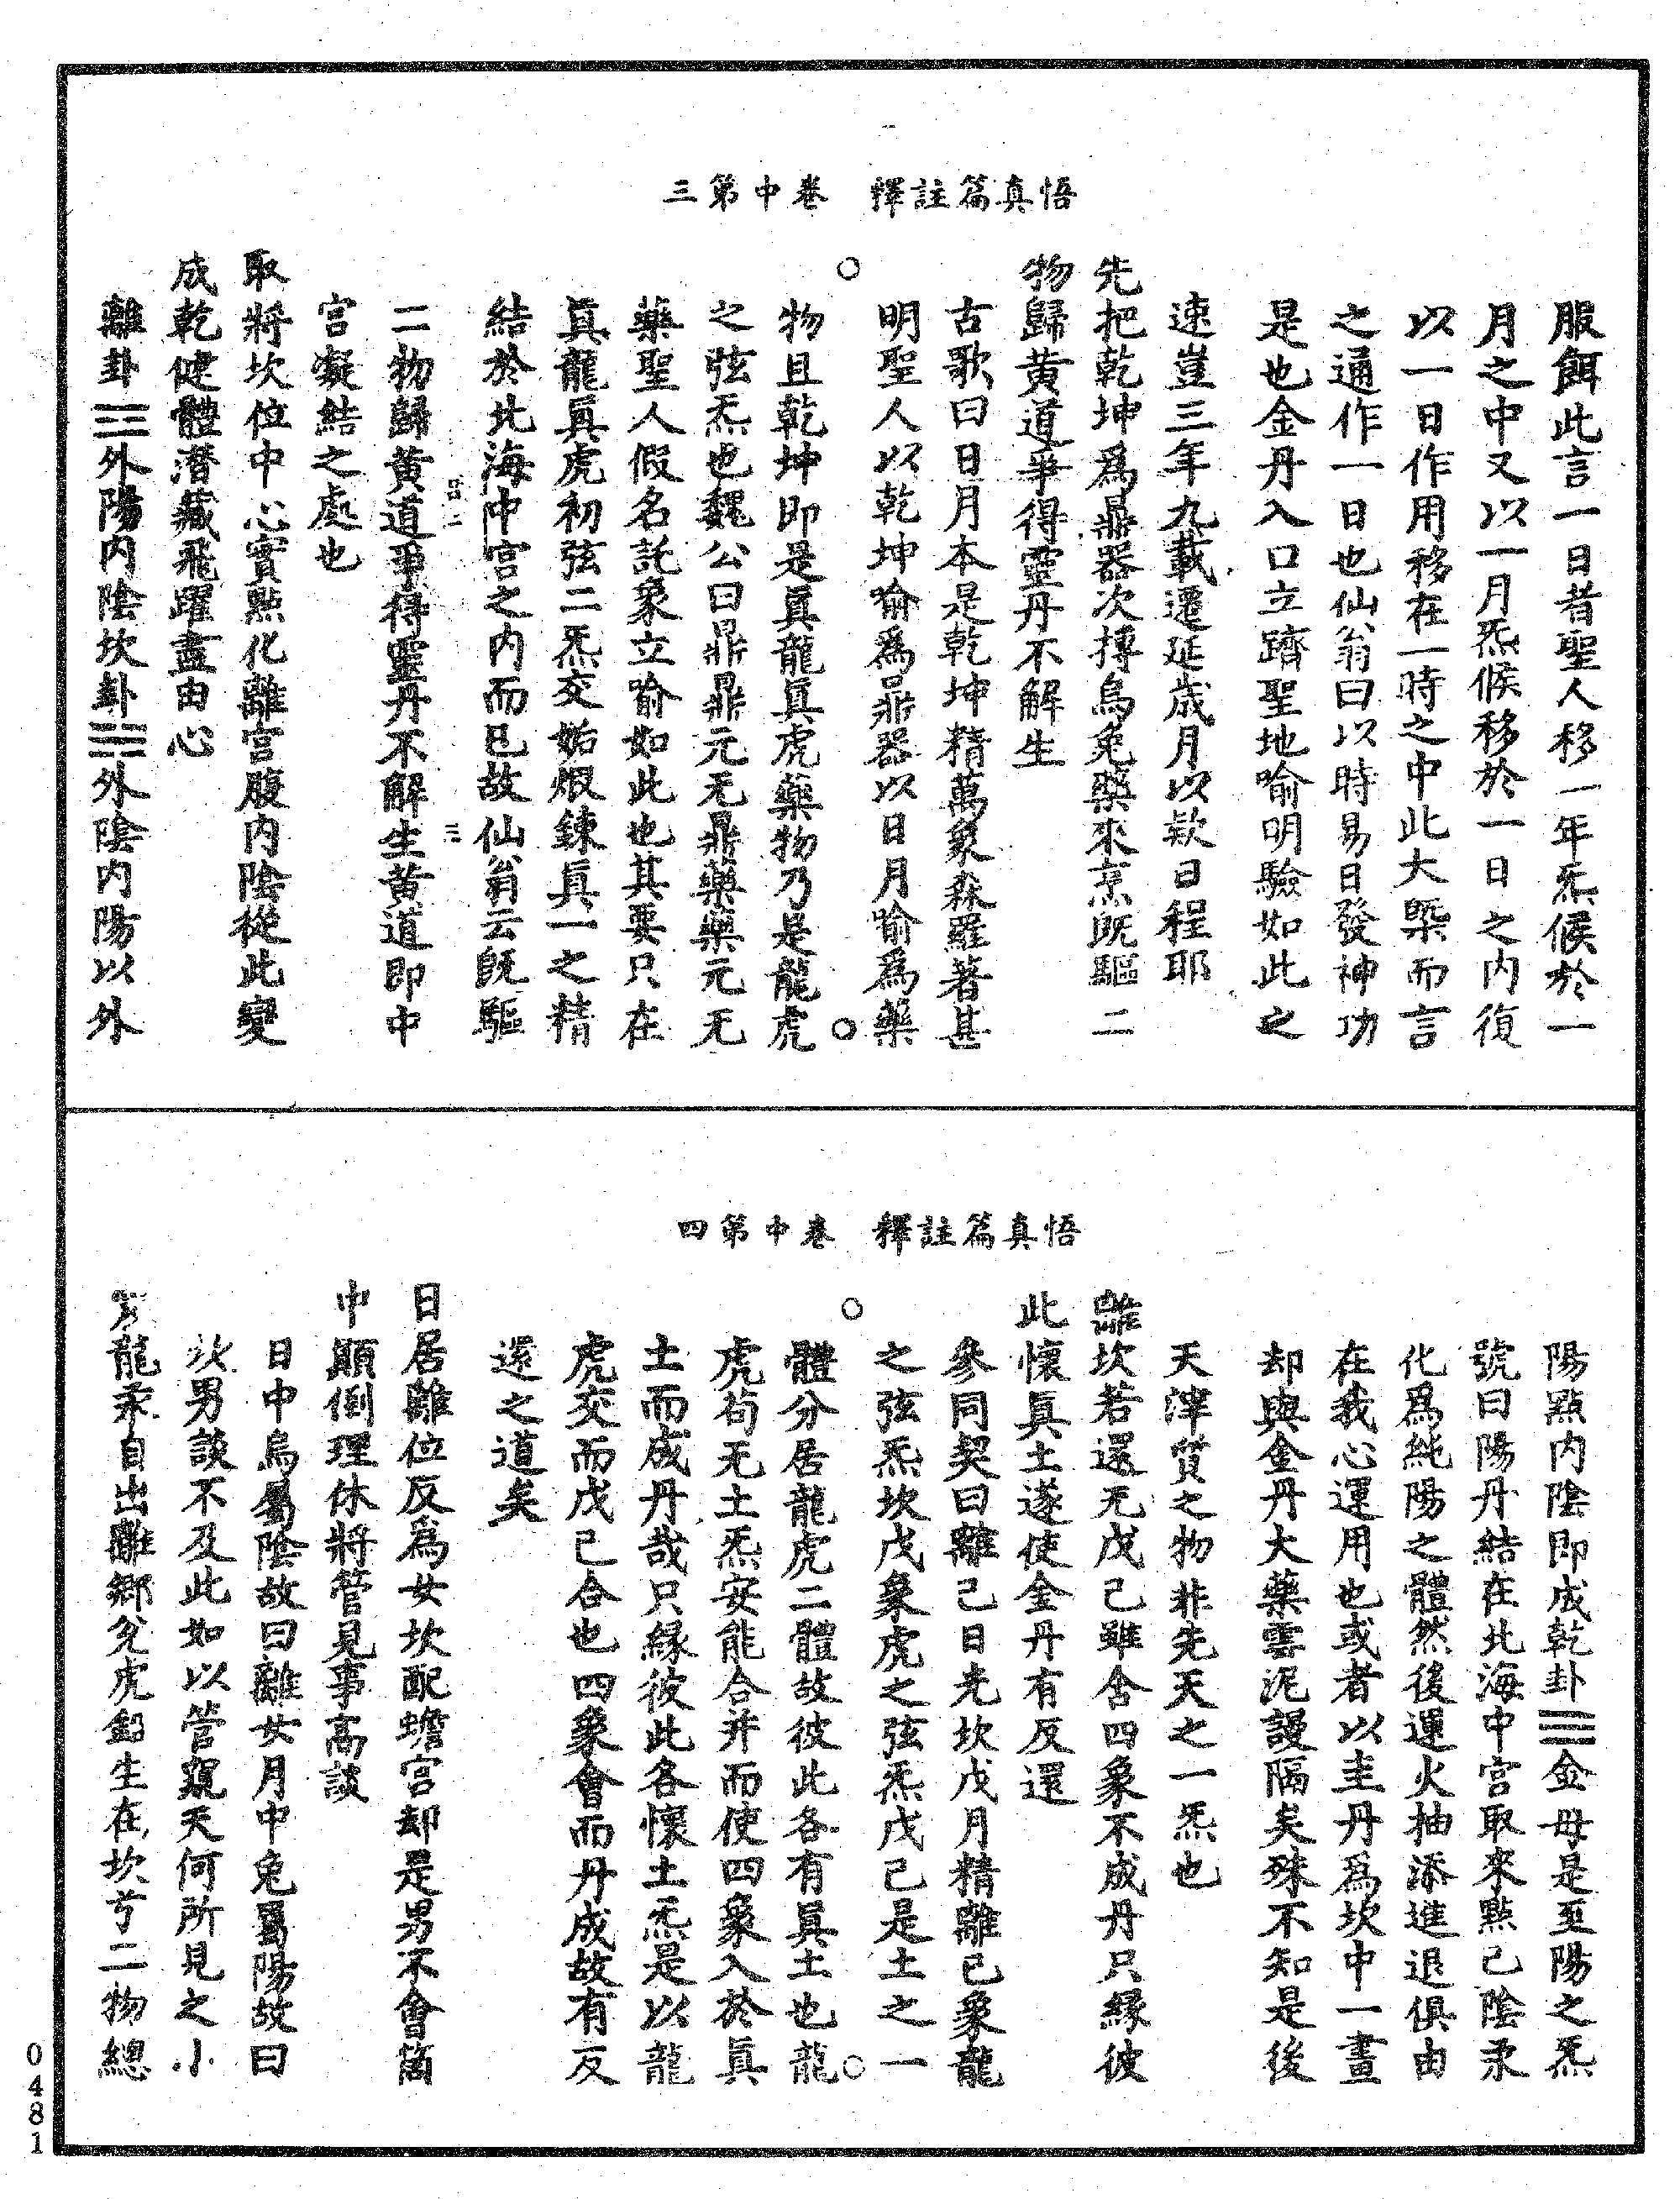 悟真篇註釋　卷中第三
服餌此言一日者聖人移一年炁候於一
月之中又以一月炁候移於一日之內復
以一日作用移在一時之中此大槩而言
之通作一日也仙翁曰以時易日發神功
是也金丹入口立躋聖地喻明驗如此之
速豈三年九載遷延歲月以款日程耶
先把乾坤爲鼎器次摶烏兔藥來烹既驅二
物歸黃道爭得靈丹不解生
古歌曰日月本是乾坤精萬象森羅著甚
明聖人以乾坤喻爲鼎器以日月喻爲藥
○　○
物且乾坤即是眞龍眞虎藥物乃是龍虎
之弦炁也魏公曰鼎鼎元无鼎藥藥元无
藥聖人假名託象立喻如此也其要只在
眞龍眞虎初弦二炁交姤煅鍊眞一之精
結於北海中宮之內而已故仙翁云既驅
二物歸黃道爭得靈丹不解生黃道即中
宮凝結之處也
取將坎位中心實點化離宮腹內陰從此變
成乾健體潛藏飛躍盡由心
離卦☲外陽內陰坎卦☵外陰內陽以外
悟真篇註釋　卷中第四
陽點內陰即成乾卦☰金母是至陽之炁
號曰陽丹結在北海中宮取來點己陰汞
化爲純陽之體然後運火抽添進退俱由
在我心運用也或者以圭丹爲坎中一畫
却與金丹大藥雲泥謾隔矣殊不知是後
天滓質之物非先天之一炁也
離坎若還无戊己雖含四象不成丹只緣彼
此懷眞土遂使金丹有反還
參同契曰離己日光坎戊月精離己象龍
之弦炁坎戊象虎之弦炁戊己是土之一
○　○
體分居龍虎二體故彼此各有眞土也龍
虎苟无土炁安能合并而使四象入於眞
土而成丹哉只緣彼此各懷土炁是以龍
虎交而戊己合也四象會而丹成故有反
還之道矣
日居離位反爲女坎配蟾宮却是男不會箇
中顚倒理休將管見事高談
日中烏屬陰故曰離女月中兔屬陽故曰
坎男談不及此如以管窺天何所見之小
震龍汞自出離鄉兌虎鉛生在坎方二物總
0481